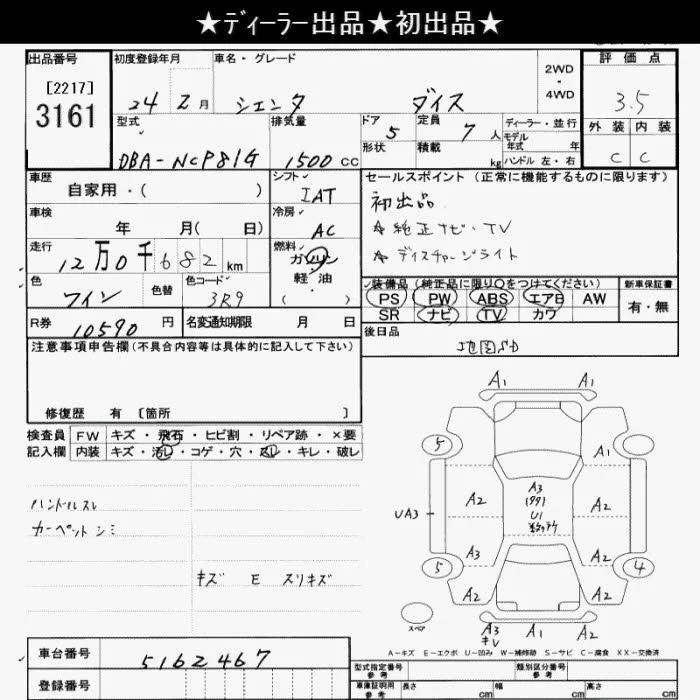 ★ディーラー出品★初出品★
出品番号 初度登録年月 車名・グレード 2WD・4WD 評価点
[2217]
3161 24 2月 シエンタ ダイス 3.5
型式 排気量 ドア 5 定員 7人 ディーラー・並行
モデル年式 年
外装 内装
DBA-NCP81G 1500cc 形状 積載 kg ハンドル左・右 C C
車歴 シフト セールスポイント (正常に機能するものに限ります)
自家用・( ) IAT 初出品
車検 冷房 ☆純正ナビ・TV
年 月( 日) AC ☆ディスチャージライト
走行 燃料
12万0千682km ガソリン
軽油
・( )
色 色替 色コード 装備品(純正品に限り○をつけてください) 新車保証書
ワイン 3R9 PS PW ABS エアB AW 有・無
SR ナビ TV カワ
R券 10590円 名変通知期限 月 日 後日品
注意事項申告欄(不具合内容等は具体的に記入して下さい) 地図SD
修復歴 有 [箇所 ]
検査員 FW キズ・飛石・ヒビ割・リペア跡・×要
記入欄 内装 キズ・汚レ・コゲ・穴・スレ・キレ・破レ
ハンドルスレ
カーペットシミ
キズ E スリキズ
A1 A1
5 A1
A2 A3 A2
UA3 U1
A3 A2
5 4
A2 A2
スペア A3 A1 A2
キレ
A-キズ E-エクボ U-凹み W-補修跡 S-サビ C-腐食 XX-交換済
車台番号 5162467
型式指定番号 参考 類別区分番号 参考
登録番号 車庫証明用 参考 長さ cm 幅 cm 高さ cm